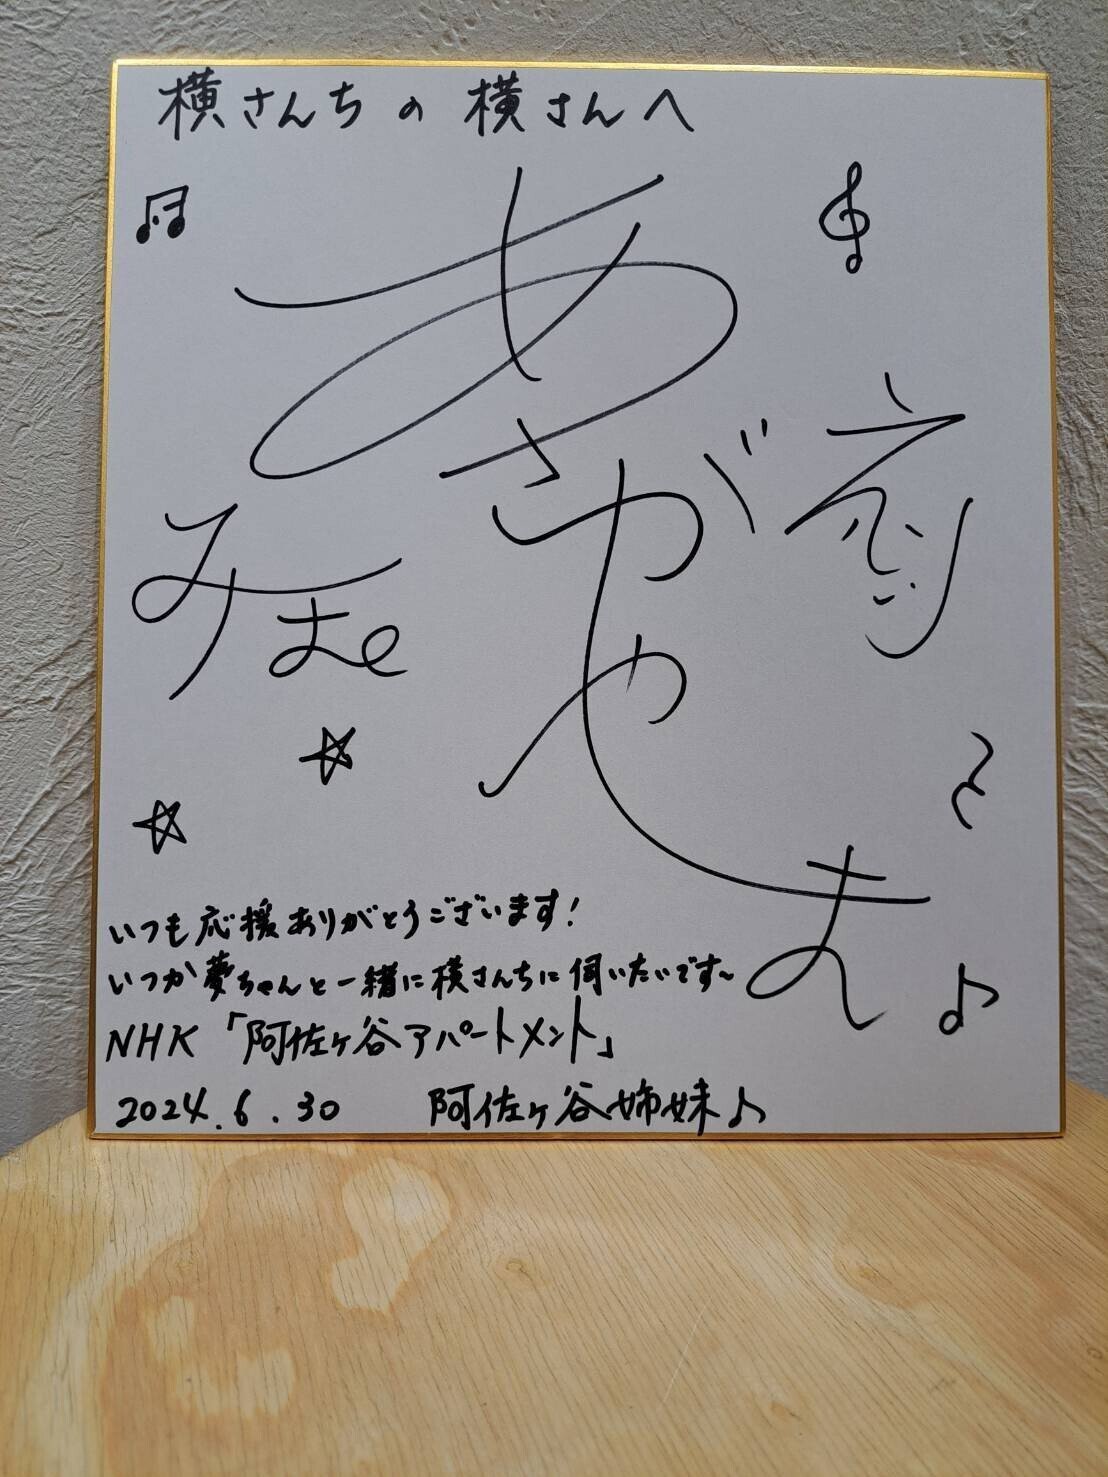 横さんちの横さんへ
あさがや
えりこ
みほ
いつも応援ありがとうございます!
いつか夢ちゃんと一緒に横さんちに伺いたいです〜
NHK「阿佐ヶ谷アパートメント」
2024.6.30 阿佐ヶ谷姉妹♪